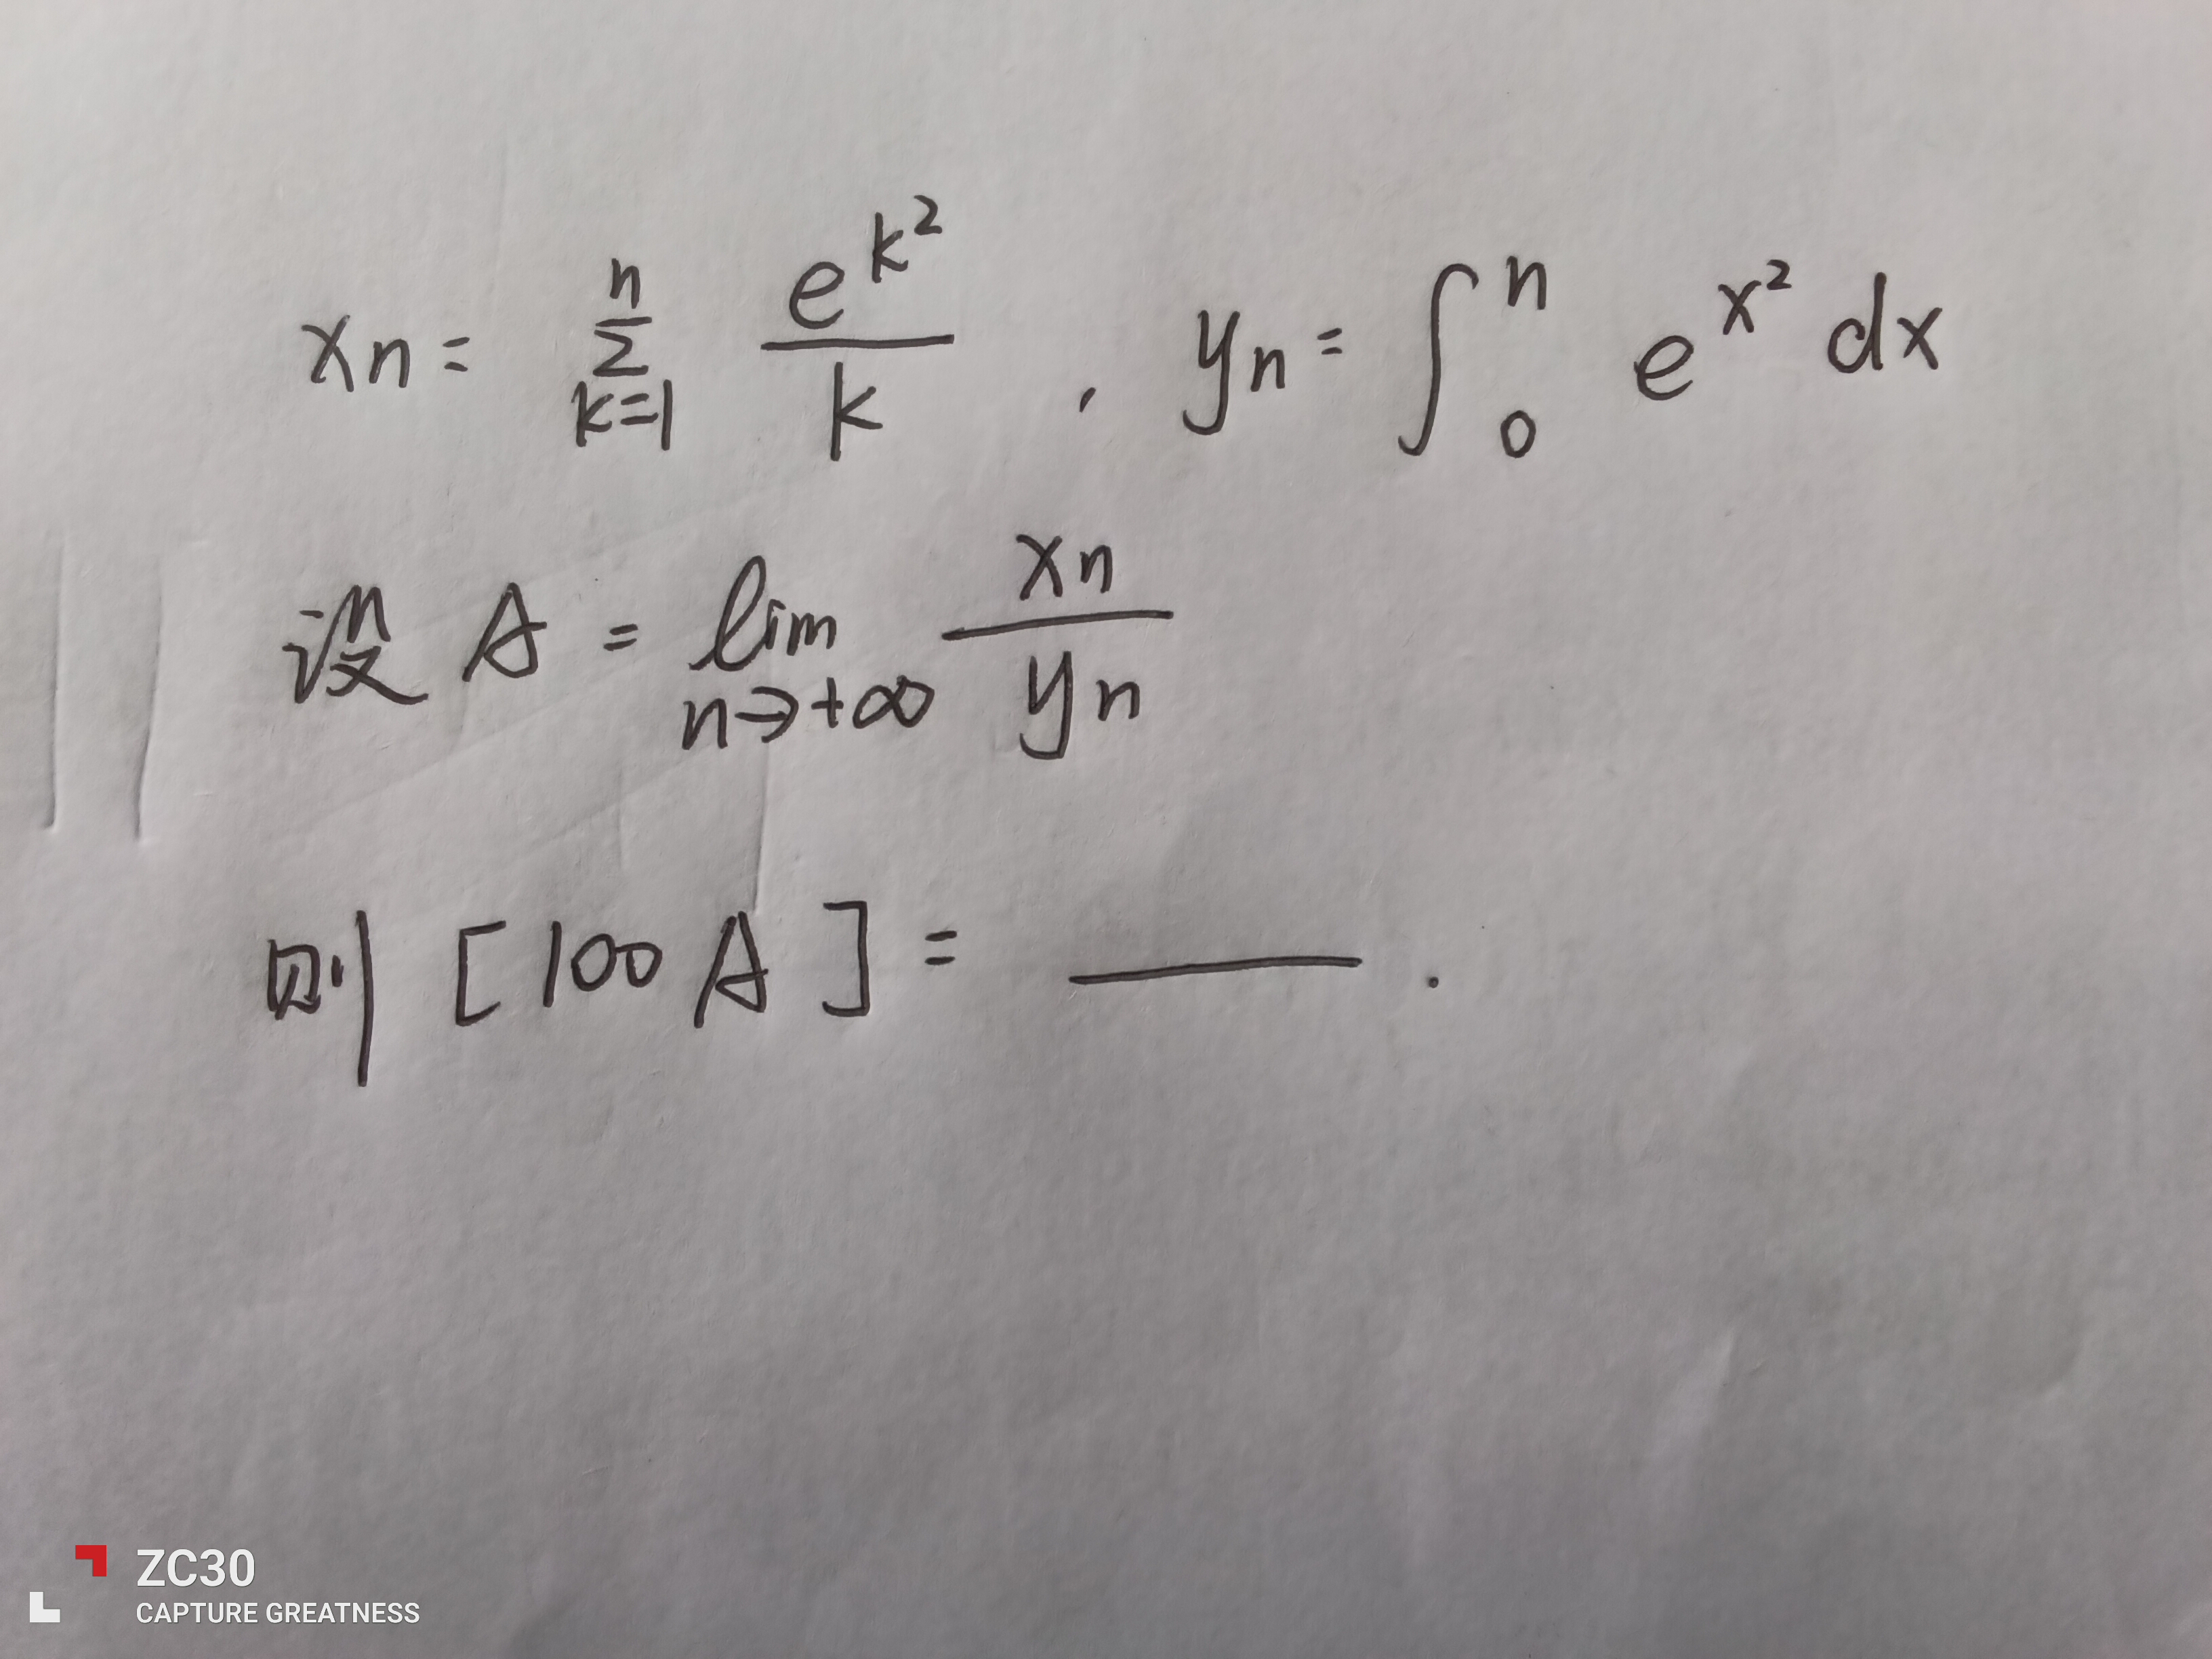 xn = \sum_{k=1}^{n} \frac{e^{k^2}}{k} , yn = \int_{0}^{n} e^{x^2} dx
设 A = \lim_{n→+∞} \frac{xn}{yn}
则 [100A] = ____ .
ZC30
CAPTURE GREATNESS